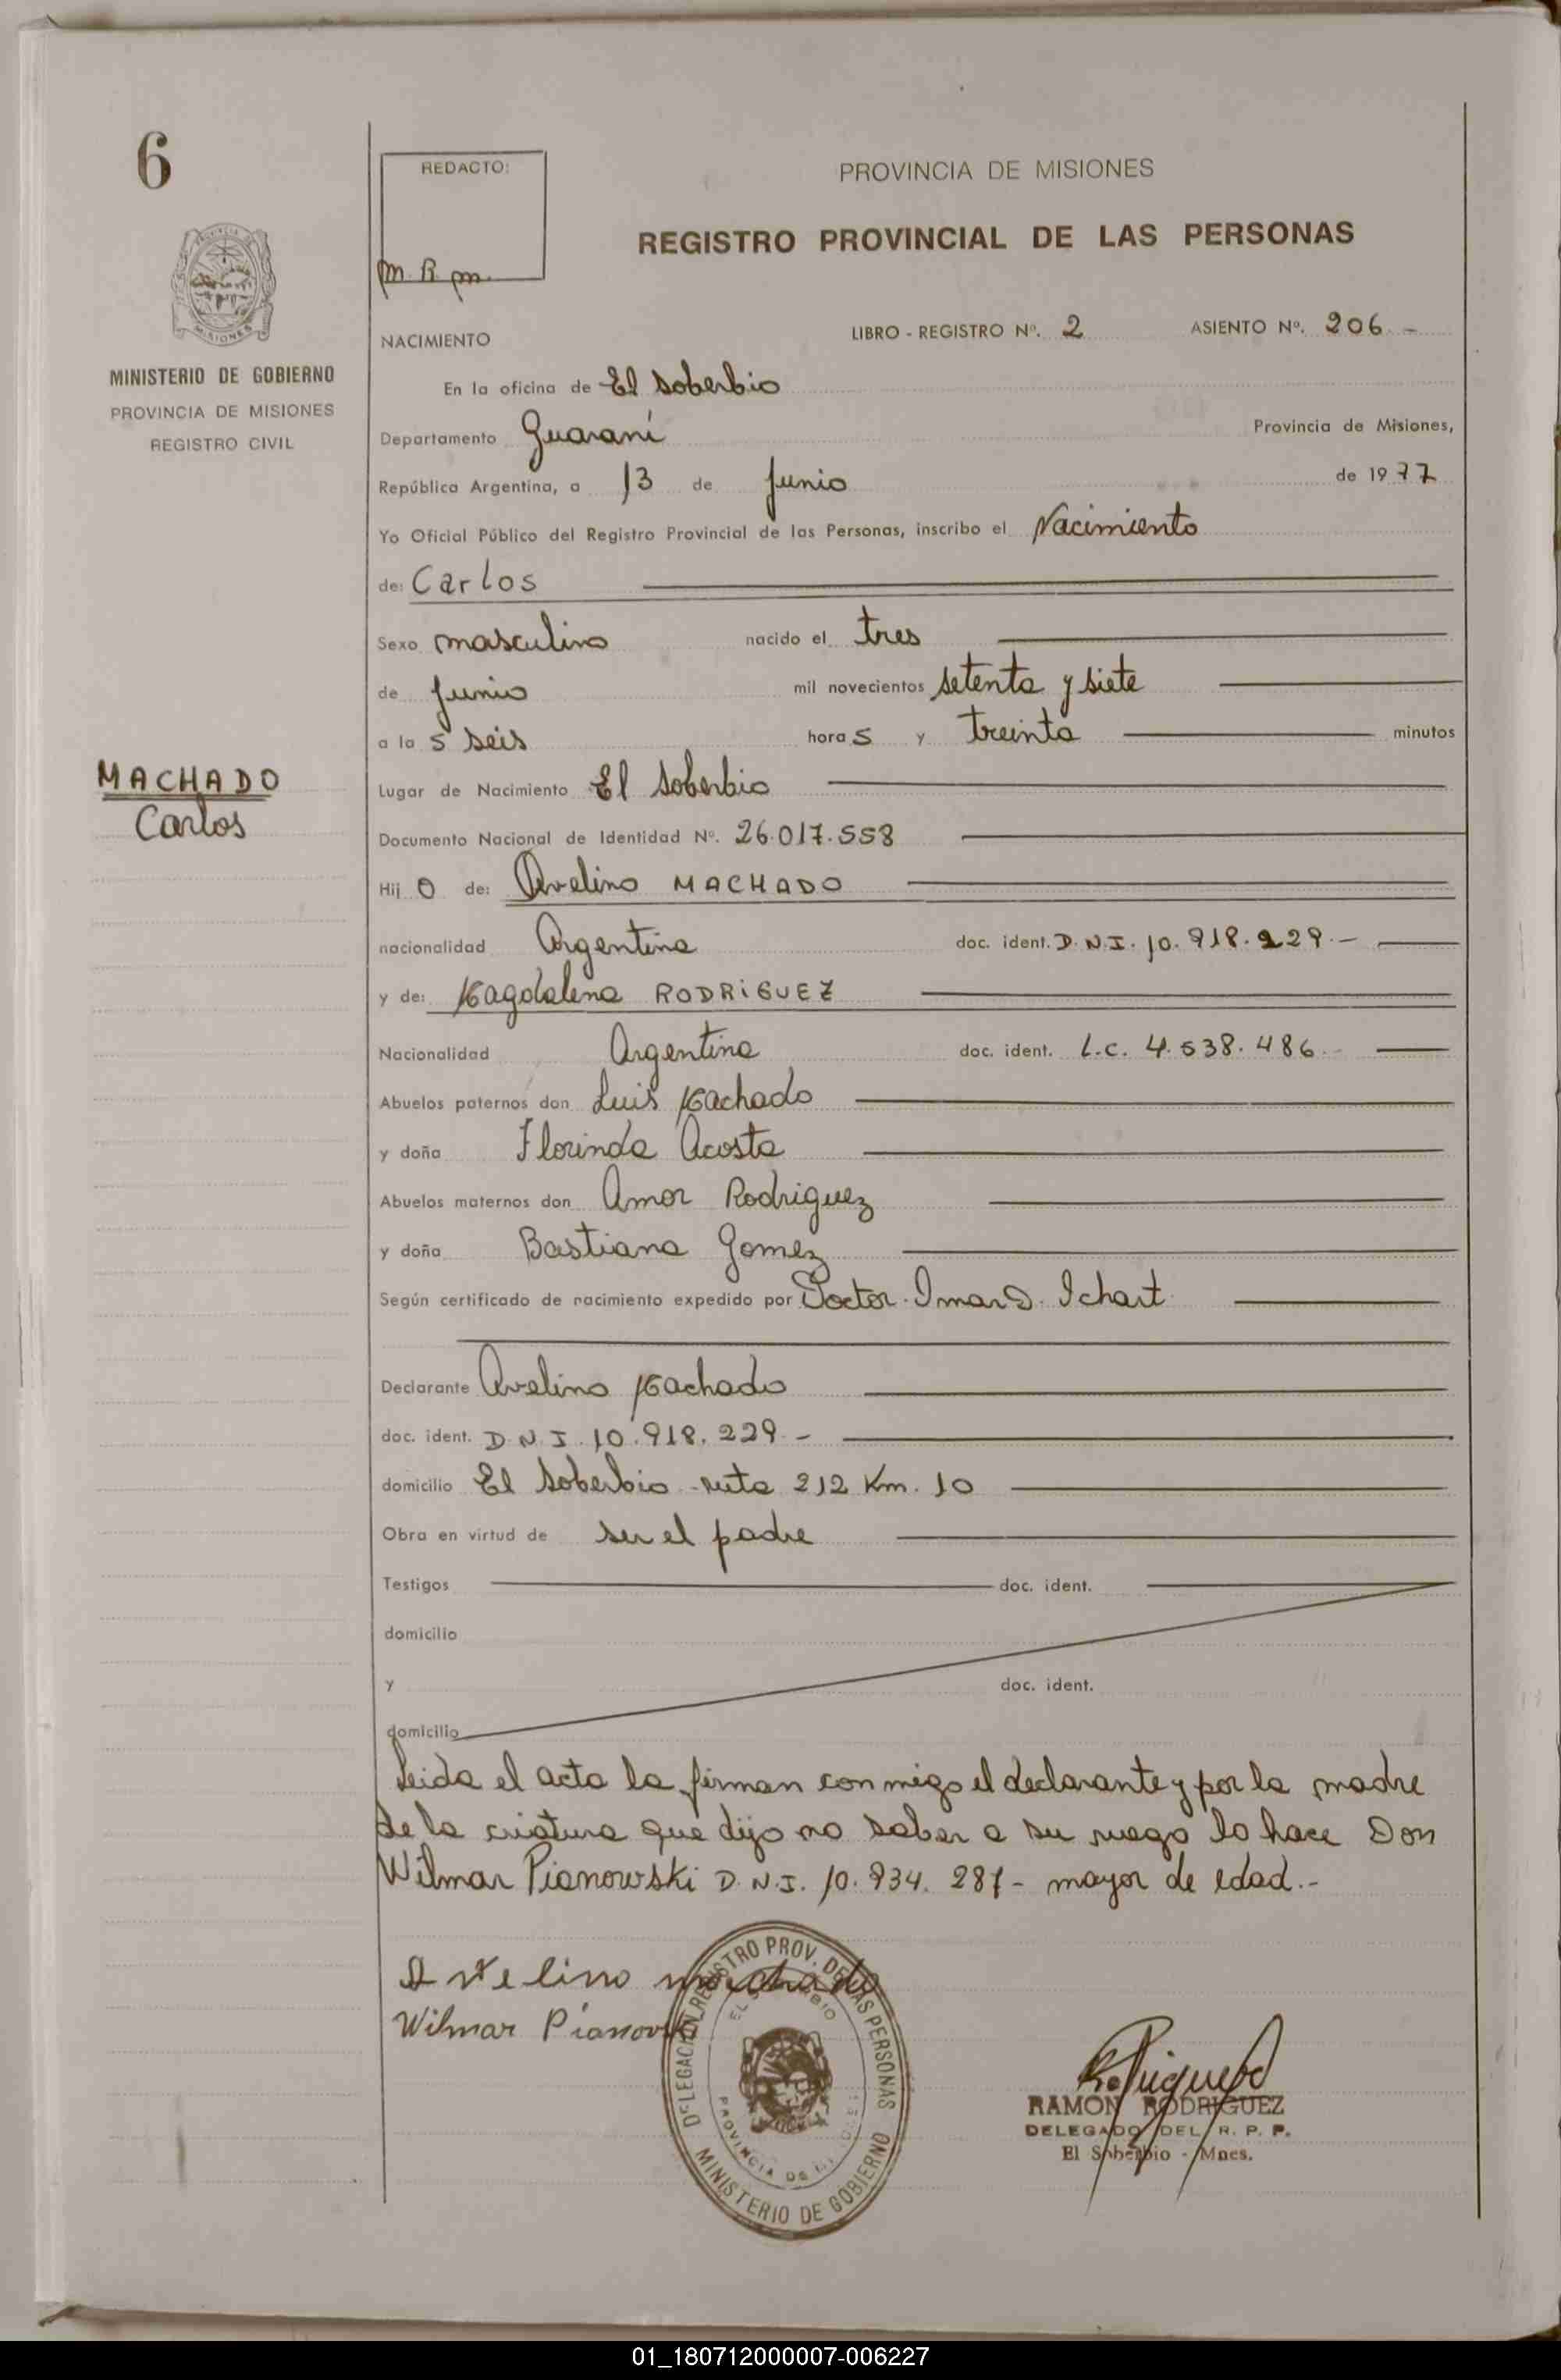 6
REDACTO:
m. R. m.
PROVINCIA DE MISIONES
REGISTRO PROVINCIAL DE LAS PERSONAS
PROVINCIA DE
MISIONES
MINISTERIO DE GOBIERNO
PROVINCIA DE MISIONES
REGISTRO CIVIL
NACIMIENTO LIBRO - REGISTRO Nº. 2 ASIENTO Nº. 206.-
En la oficina de El Soberbio
Departamento Guaraní Provincia de Misiones,
República Argentina, a 13 de Junio de 1977
Yo Oficial Público del Registro Provincial de las Personas, inscribo el Nacimiento
de: Carlos
Sexo masculino nacido el tres
de Junio mil novecientos setenta y siete
a las seis horas y treinta minutos
MACHADO
Carlos
Lugar de Nacimiento El Soberbio
Documento Nacional de Identidad Nº. 26.017.558
Hijo de: Avelino MACHADO
nacionalidad Argentina doc. ident. D.N.I. 10.918.229.-
y de: Magdalena RODRiGUEZ
Nacionalidad Argentina doc. ident. L.C. 4.538.486.-
Abuelos paternos don Luis Machado
y doña Florinda Acosta
Abuelos maternos don Amor Rodriguez
y doña Bastiana Gomez
Según certificado de nacimiento expedido por Doctor. Imar D. Ichart
Declarante Avelino Machado
doc. ident. D.N.I. 10.918.229.-
domicilio El Soberbio - ruta 212 Km. 10
Obra en virtud de ser el padre
Testigos doc. ident.
domicilio
y doc. ident.
domicilio
Leida el acta la firman conmigo el declarante y por la madre
de la criatura que dijo no saber a su ruego lo hace Don
Wilmar Pianowski D.N.I. 10.934.287- mayor de edad.-
Avelino machado
Wilmar Pianowski
DELEGACION REGISTRO PROV. DE LAS PERSONAS
EL SOBERBIO
PROVINCIA DE
MINISTERIO DE GOBIERNO
RAMON RODRIGUEZ
DELEGADO DEL R. P. P.
El Soberbio - Mnes.
01_180712000007-006227